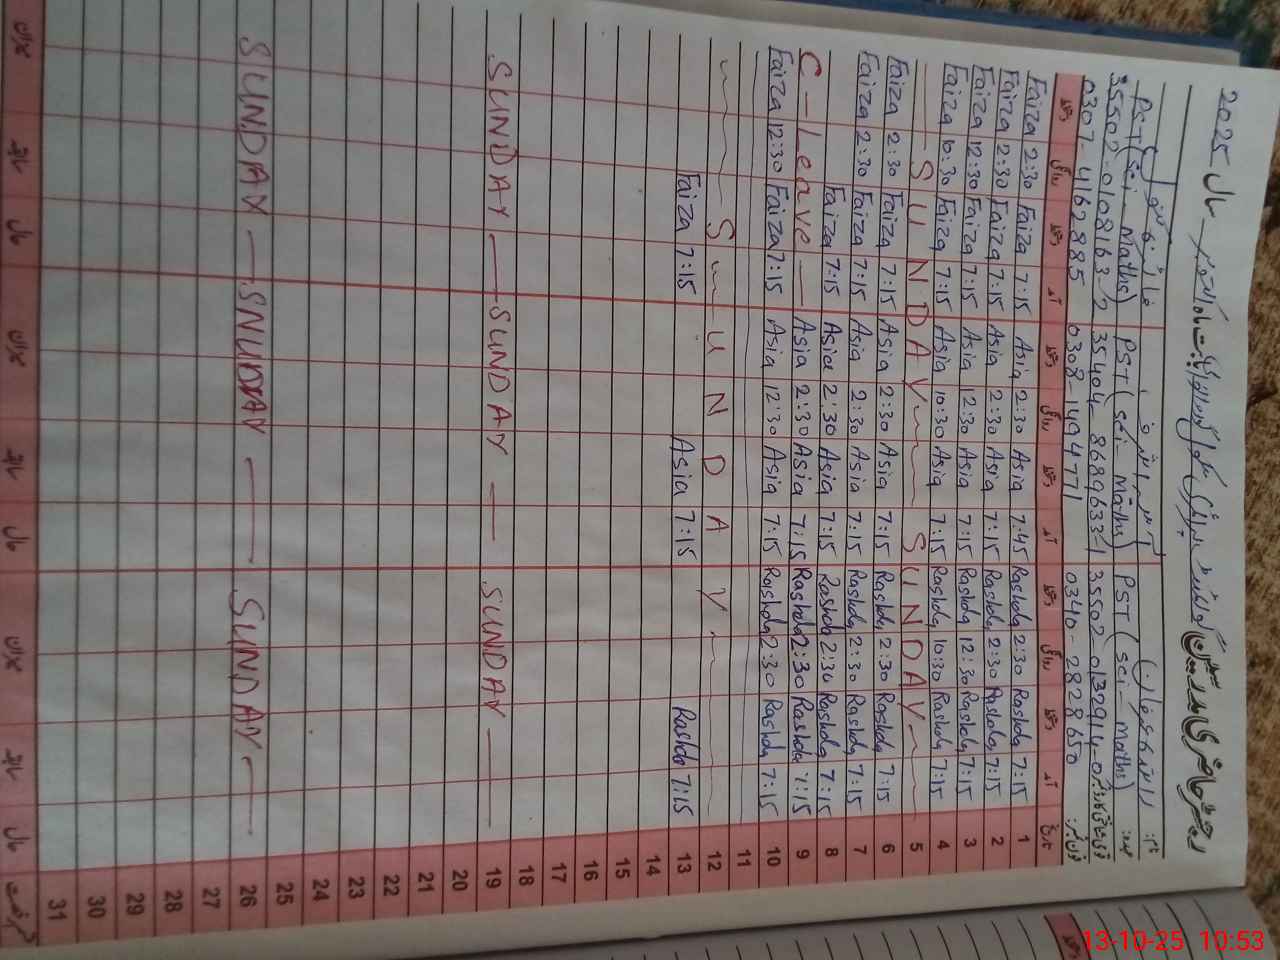 رجسٹر حاضری مدرسین گورنمنٹ پرائمری سکول بابت ماہ اکتوبر سال 2025
نام:
PST (Sci-Maths) PST (Sci-Maths) PST (Sci-Maths) عہدہ:
35502-0108163-2 35404-8689633-1 35502-0132914-0
0307-4162885 0308-1494771 0340-2828650 فون نمبر:
دستخط روانگی دستخط آمد دستخط روانگی دستخط آمد دستخط روانگی دستخط آمد تاریخ
Faiza 2:30 Faiza 7:15 Asia 2:30 Asia 7:45 Rashda 2:30 Rashda 7:15 1
Faiza 2:30 Faiza 7:15 Asia 2:30 Asia 7:15 Rashda 2:30 Rashda 7:15 2
Faiza 12:30 Faiza 7:15 Asia 12:30 Asia 7:15 Rashda 12:30 Rashda 7:15 3
Faiza 10:30 Faiza 7:15 Asia 10:30 Asia 7:15 Rashda 10:30 Rashda 7:15 4
SUNDAY SUNDAY 5
Faiza 2:30 Faiza 7:15 Asia 2:30 Asia 7:15 Rashda 2:30 Rashda 7:15 6
Faiza 2:30 Faiza 7:15 Asia 2:30 Asia 7:15 Rashda 2:30 Rashda 7:15 7
Faiza 7:15 Asia 2:30 Asia 7:15 Rashda 2:30 Rashda 7:15 8
C-Leave Asia 2:30 Asia 7:15 Rashda 2:30 Rashda 7:15 9
Faiza 12:30 Faiza 7:15 Asia 12:30 Asia 7:15 Rashda 2:30 Rashda 7:15 10
11
SUNDAY 12
Faiza 7:15 Asia 7:15 Rashda 7:15 13
14
15
16
17
18
SUNDAY SUNDAY SUNDAY 19
20
21
22
23
24
25
SUNDAY SNUDAY SUNDAY 26
27
28
29
30
31
میزان سابقہ حال میزان سابقہ حال میزان سابقہ حال
13-10-25 10:53